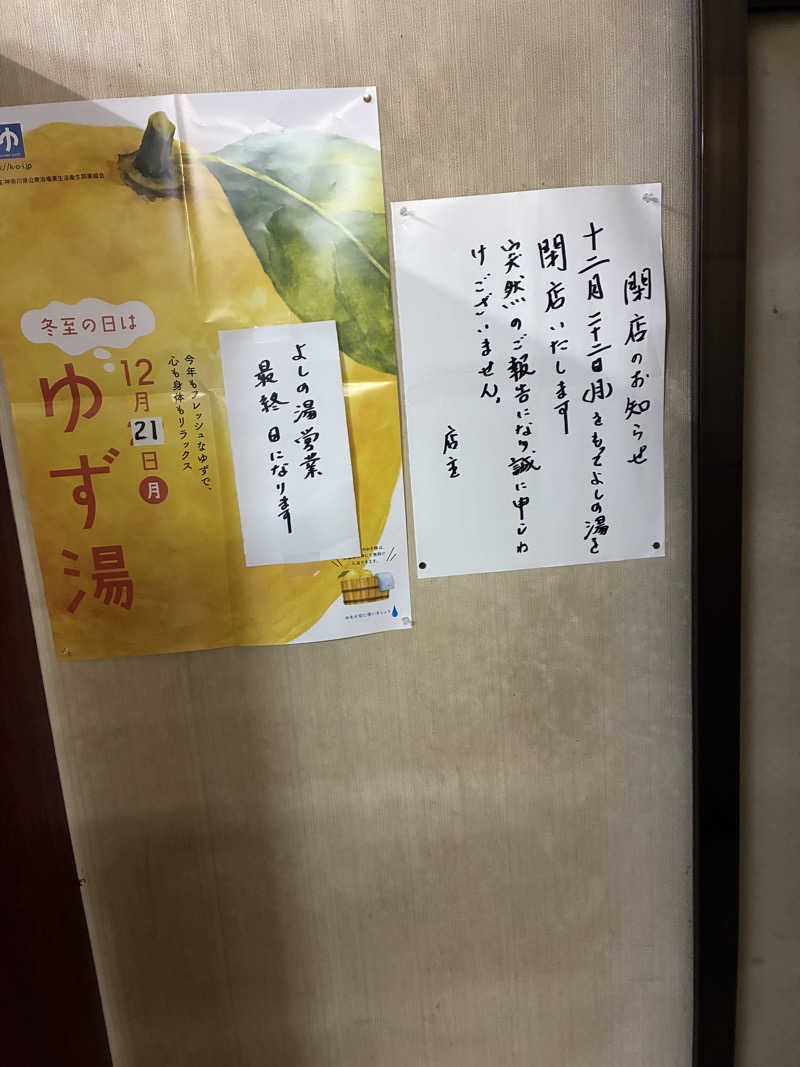 閉店のお知らせ
十二月二十二日(月)をもってよしの湯を
閉店いたします
突然のご報告になり、誠に申しわ
けございません。
店主
ゆ
神奈川県公衆浴場業生活衛生同業組合
冬至の日は
12月21日月
ゆず湯
今年もフレッシュなゆずで、
心も身体もリラックス
よしの湯営業
最終日になります